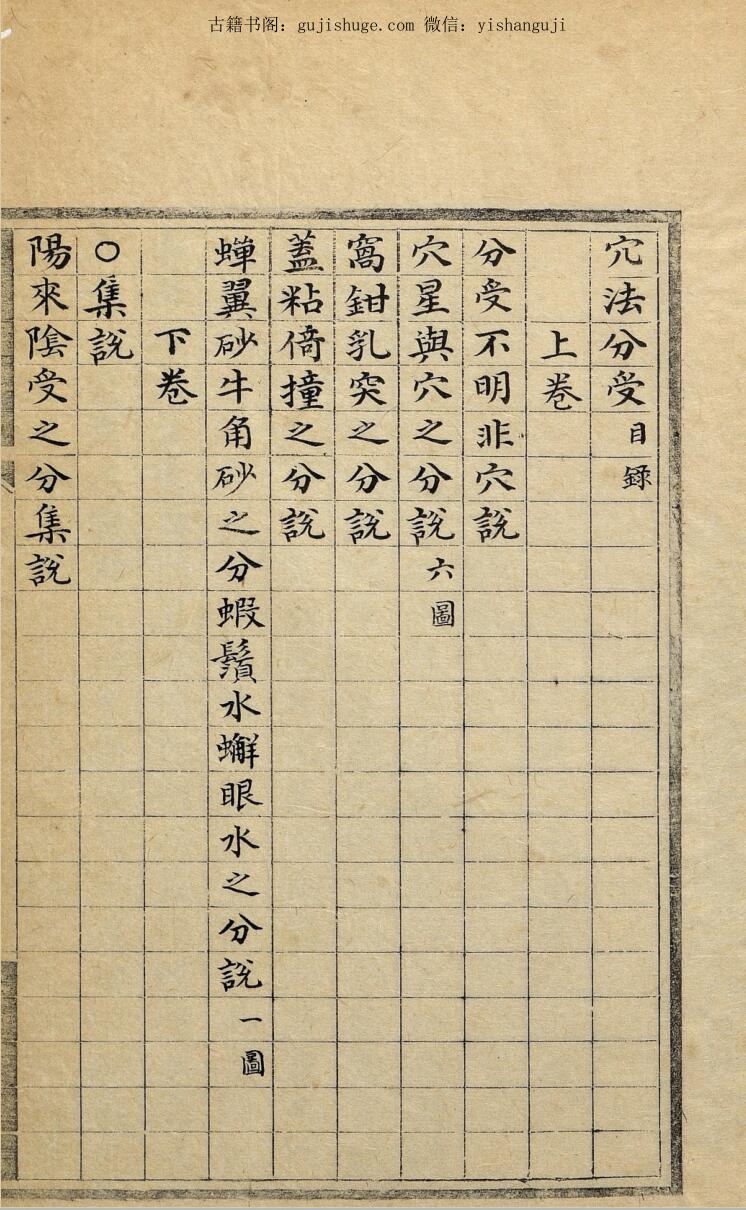 古籍书阁：gujishuge.com 微信：yishanguji
穴法分受目錄
上卷
分受不明非穴說
穴星與穴之分說六圖
窩鉗乳突之分說
蓋粘倚撞之分說
蟬翼砂牛角砂之分蝦鬚水蠏眼水之分說一圖
下卷
○集說
陽來陰受之分集說